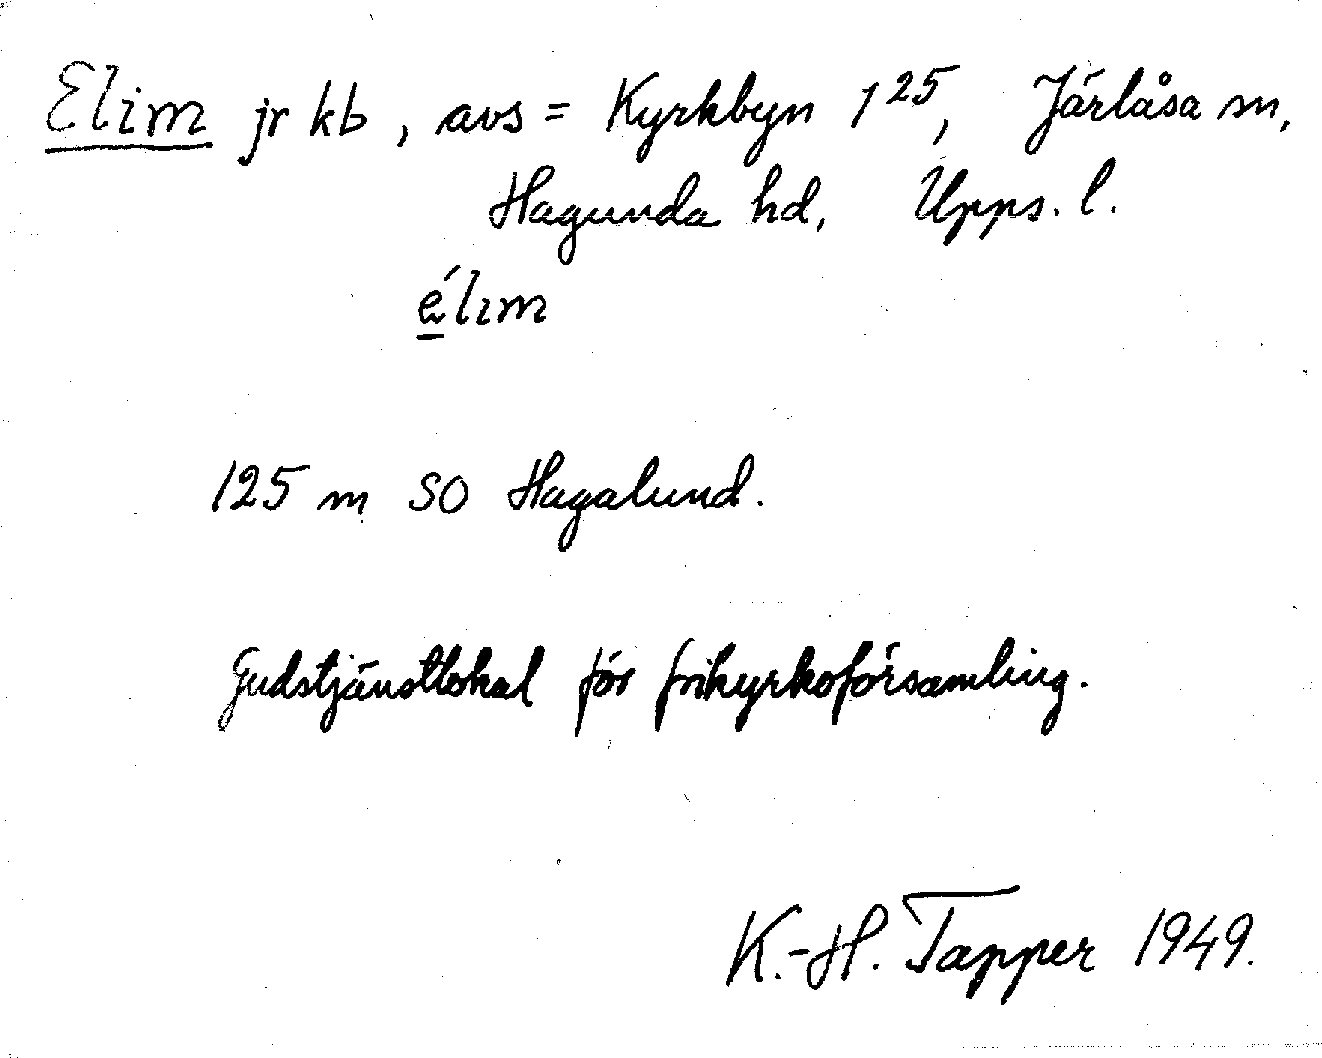 Elim jr kb, avs = Kyrkbyn 1²⁵, Järlåsa sn,
Hagunda hd, Upps. l.
é̱lım
125 m SO Hagalund.
Gudstjänstlokal för frikyrkoförsamling.
K.-H. Tapper 1949.